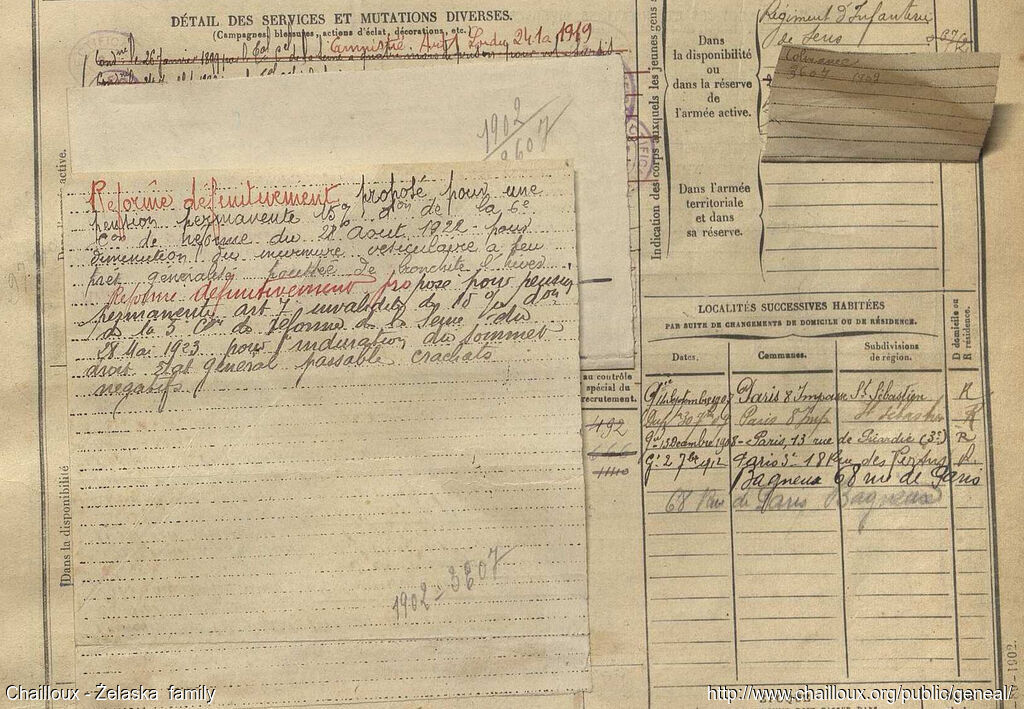 DÉTAIL DES SERVICES ET MUTATIONS DIVERSES.
(Campagnes, blessures, actions d'éclat, décorations, etc.)
Amnistié 1919
Cond. le 26 janvier 1899
1902
3607
Réformé définitivement proposé pour une
pension permanente 15% don de la 6e
Con de réforme du 28 Aout 1922 pour
diminution du murmure vesiculaire a peu
prèt généralisé poussée de bronchite l'hiver
Réformé définitivement proposé pour pension
permanente art 7 invalidité de 10% don
de la 5 Con de réforme de la Seine du
28 Mai 1923 pour induration du sommet
droit état général passable crachats
negatifs
1902 - 3607
active.
Dans la disponibilité
au contrôle
spécial du
recrutement.
492
Indication des corps auxquels les jeunes gens s
Dans
la disponibilité
ou
dans la réserve
de
l'armée active.
Régiment d'Infanterie
de Sens
3607 1902
Dans l'armée
territoriale
et dans
sa réserve.
LOCALITÉS SUCCESSIVES HABITÉES
PAR SUITE DE CHANGEMENTS DE DOMICILE OU DE RÉSIDENCE.
Dates. Communes. Subdivisions de région. D domicile ou R résidence.
Septembre Paris 8 Impasse St Sébastien R
Paris 8 Imp St Sébastien R
13 Décembre 1908 - Paris, 13 rue de Picardie (3e) R
2 7bre 1912 Paris 18 Rue des R
Bagneux 68 rue de Paris
68 Rue de Paris Bagneux
ÉPOQUE
1902.
Chailloux - Żelaska family
http://www.chailloux.org/public/geneal/